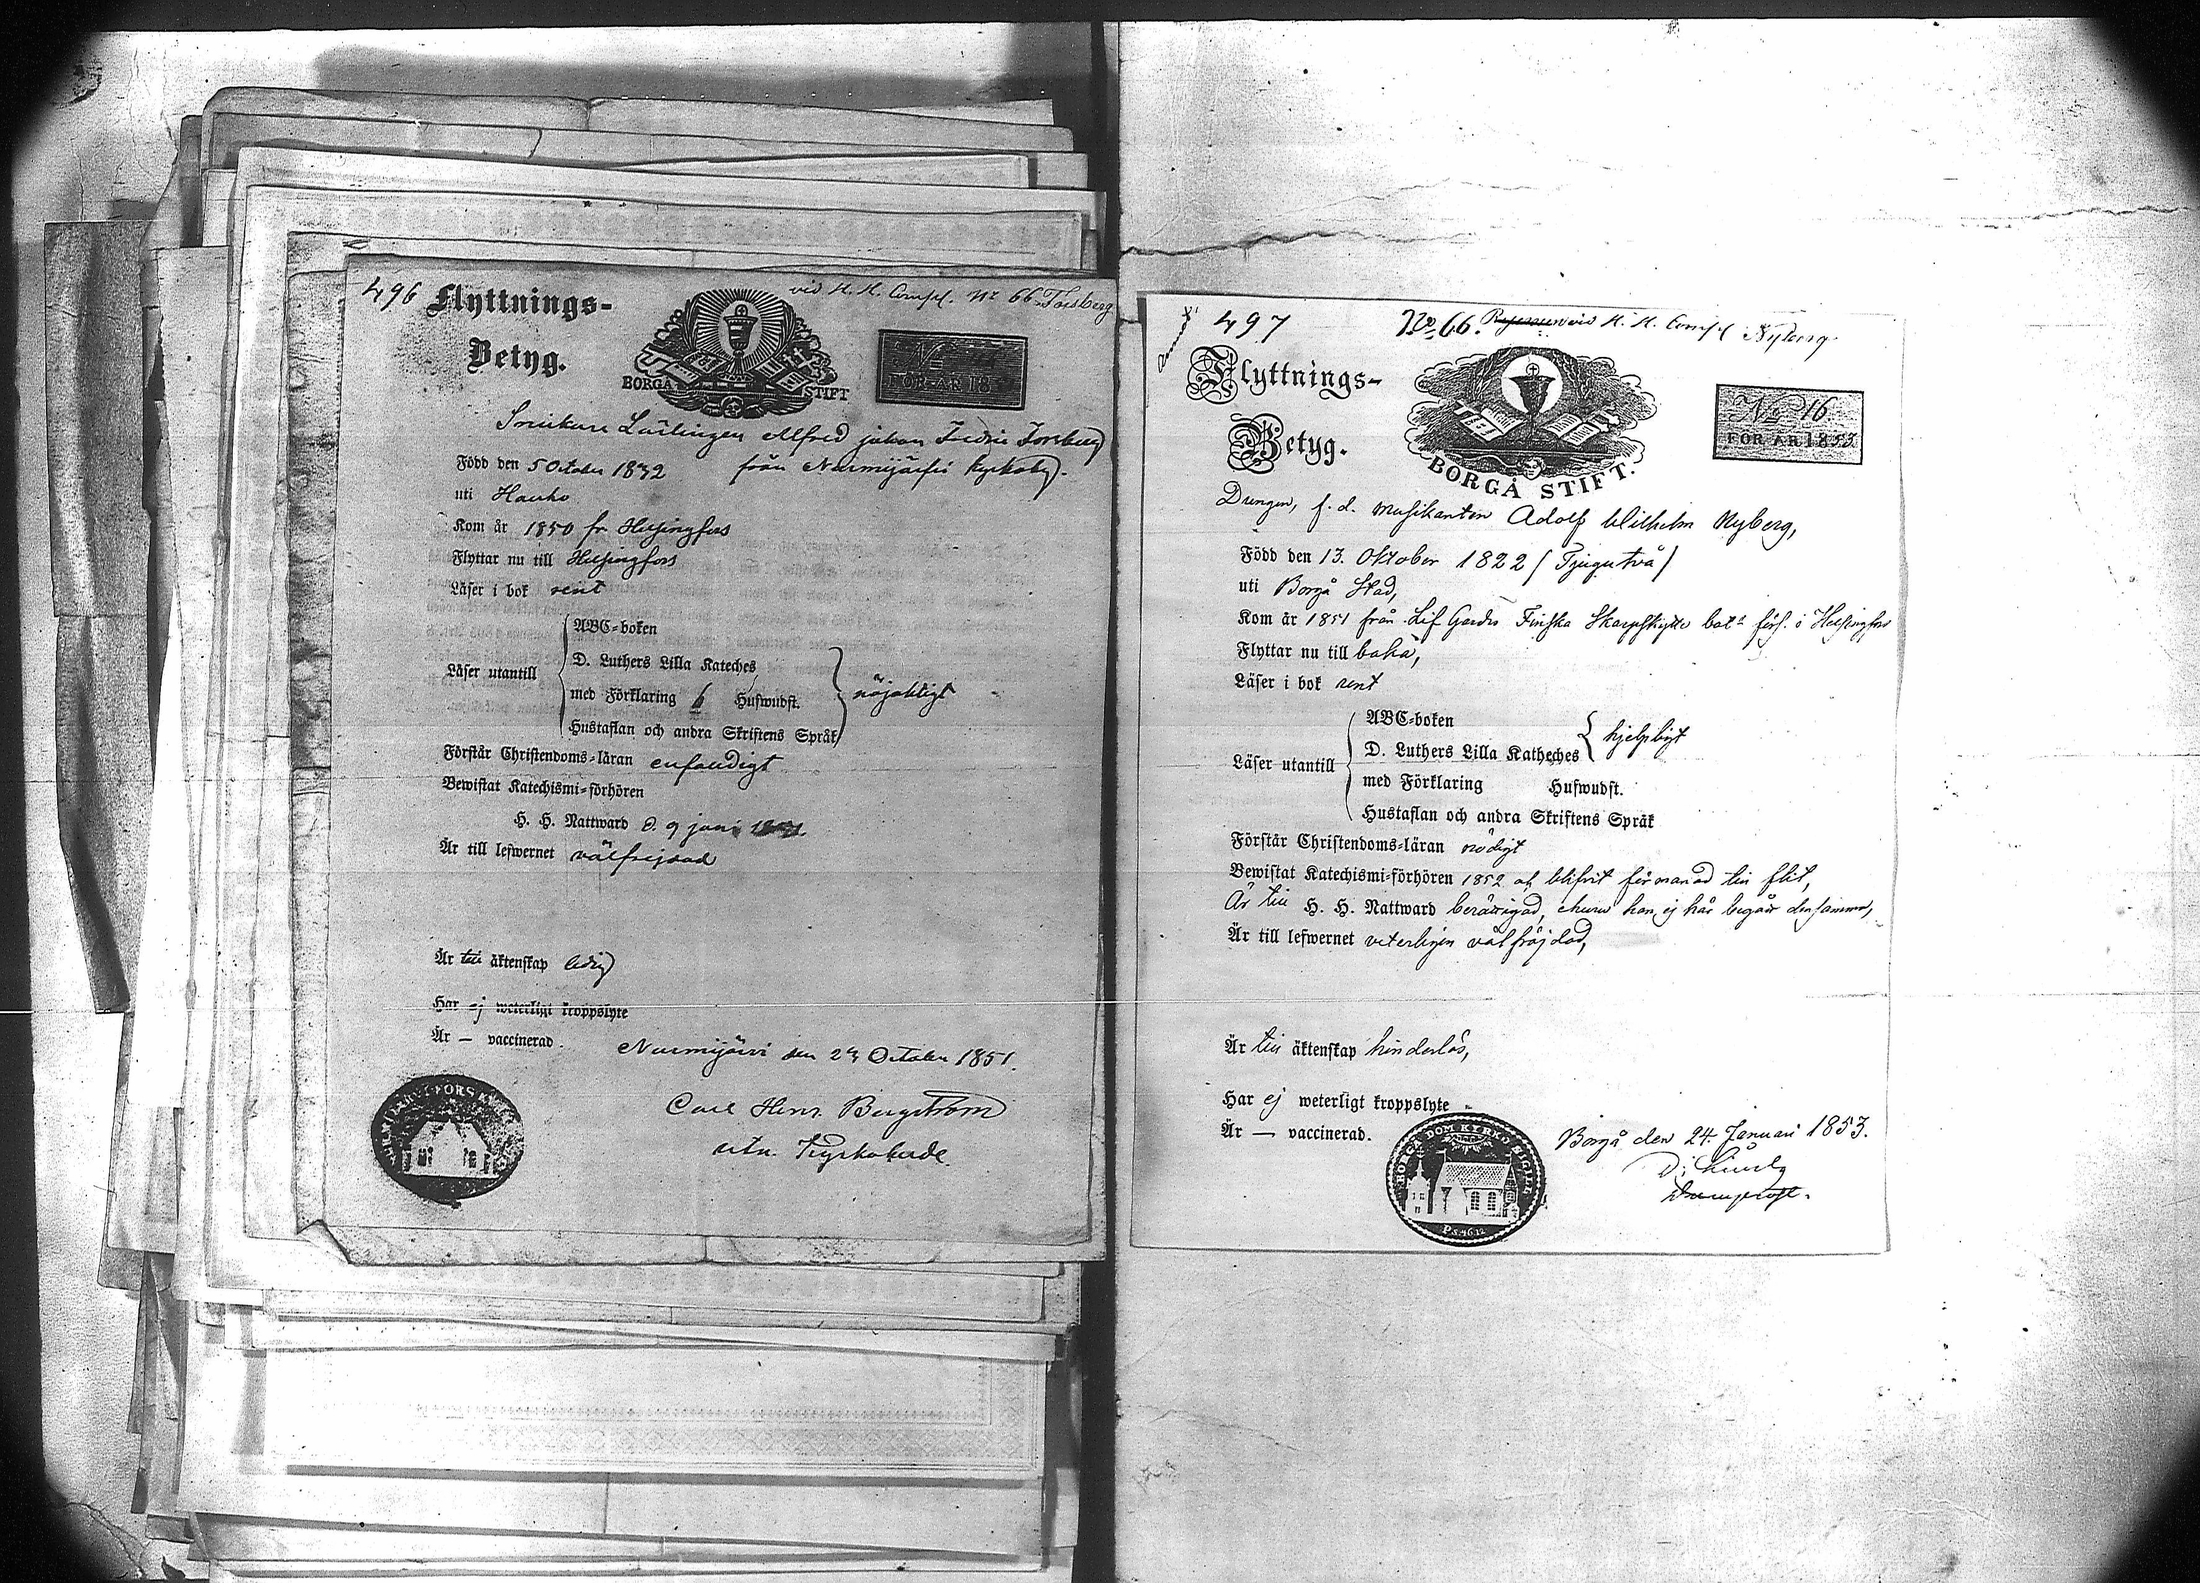 496 Flyttnings-
Betyg.
vid H. H. Compl. Nr 66 Forsberg
BORGÅ STIFT
No
FÖR ÅR 18
Snickare Lärlingen Alfred Johan Fredric Forsberg
Född den 5 October 1832 från Nurmijärvi kyrkoby.
uti Hauho
Kom år 1850 fr Helsingfors
Flyttar nu till Helsingfors
Läser i bok rent
Läser utantill
ABC-boken
D. Luthers Lilla Kateches
med Förklaring 6 Hufwudst.
Hustaflan och andra Skriftens Språk
nöjaktigt
Förstår Christendoms-läran enfaldigt
Bewistat Katechismi-förhören
H. H. Nattward d. 9 juni 1851.
Är till lefwernet välfrejdad
Är till äktenskap ledig
Har ej weterligt kroppslyte
Är — vaccinerad.
Nurmijärvi den 24 October 1851.
Carl Henr. Bergström
Kyrkoherde.
497
No 66. H. H. Compl Nyberg
Flyttnings-
Betyg.
BORGÅ STIFT.
No 16
FÖR ÅR 1853
Drengen, f. d. Musikanten Adolf Wilhelm Nyberg,
Född den 13. Oktober 1822 (Tjugutvå)
uti Borgå Stad,
Kom år 1851 från Lif Gardes Finska Skarpskytte bat:s förs. i Helsingfors
Flyttar nu till baka,
Läser i bok rent
Läser utantill
ABC-boken
D. Luthers Lilla Katheches
med Förklaring Hufwudst.
Hustaflan och andra Skriftens Språk
hjelpligt
Förstår Christendoms-läran nödigt
Bewistat Katechismi-förhören 1852 och blifvit förmanad till flit,
Är till H. H. Nattward berättigad, ehuru han ej här begått densamma,
Är till lefwernet veterligen välfräjdad,
Är till äktenskap hinderlös,
Har ej weterligt kroppslyte
Är — vaccinerad.
BORGÅ DOM KYRKO SIGILL
Borgå den 24. Januari 1853.
Domprost.